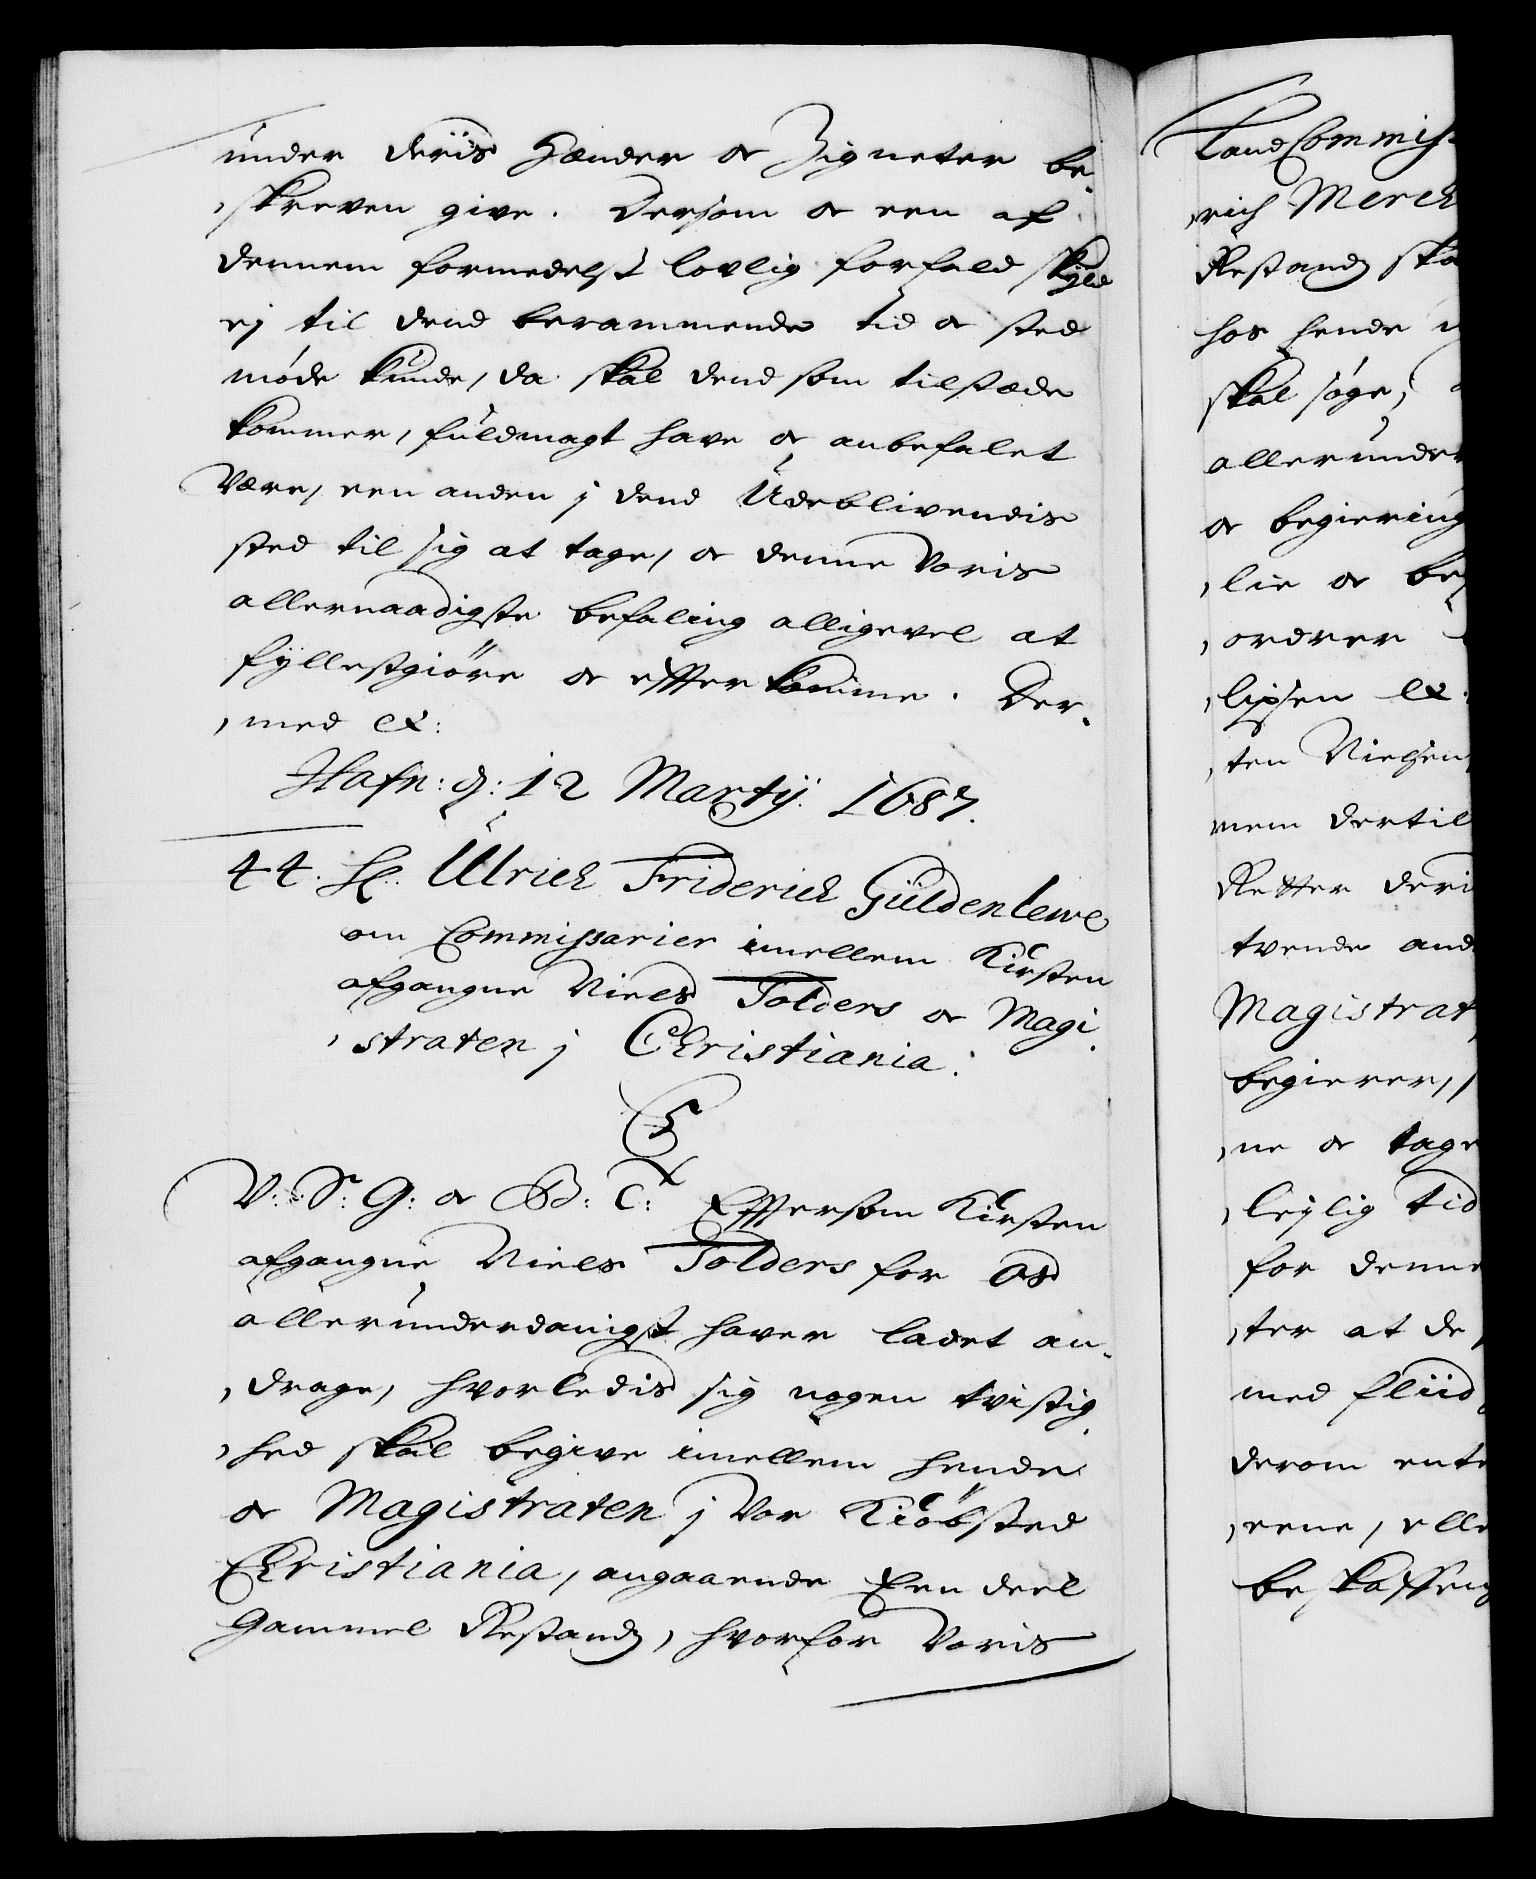 under deris Hænder oc Zigneter be-
skreven give. Dersom oc een af
dennem formedelst lovlig forfald skyld
ej til dend berammende tid oc sted
møde kunde, da skal dend som tilstæde
kommer, fuldmagt have oc anbefalet
være, een anden j dend Udeblivendis
sted til sig at tage, oc denne Voris
allernaadigste befaling alligevel at
fyllestgiöre oc efterkomme. Der-
med &:
Hafn: d: 12 Martÿ 1687.
44. H. Ulrich Friderich Güldenlewe
om Commissarier imellem Kirsten
afgangne Niels Tolders oc Magi-
straten j Christiania.
C5
V: S: G: oc B: C: Eftersom Kirsten
afgangne Niels Tolders for Os
allerunderdanigst haver ladet an-
drage, hvorledis sig nogen tvistig-
hed skal begive imellem hende
oc Magistraten j Vor Kiöbsted
Christiania, angaaende Een deel
Gammel Restands, hvorfor Voris
LandCommiss
rich Merck
Restands ska
hos hende
skal søge,
allerunder
oc begiering
lie oc be
ordrer
lipsen &
ten Nielsen
nem dertil
Retter deri
tvende and
Magistrat
begierer,
ne oc tage
leylig tid
for denne
ter at de
med fliid
derom ent
eene, elle
beskaffen